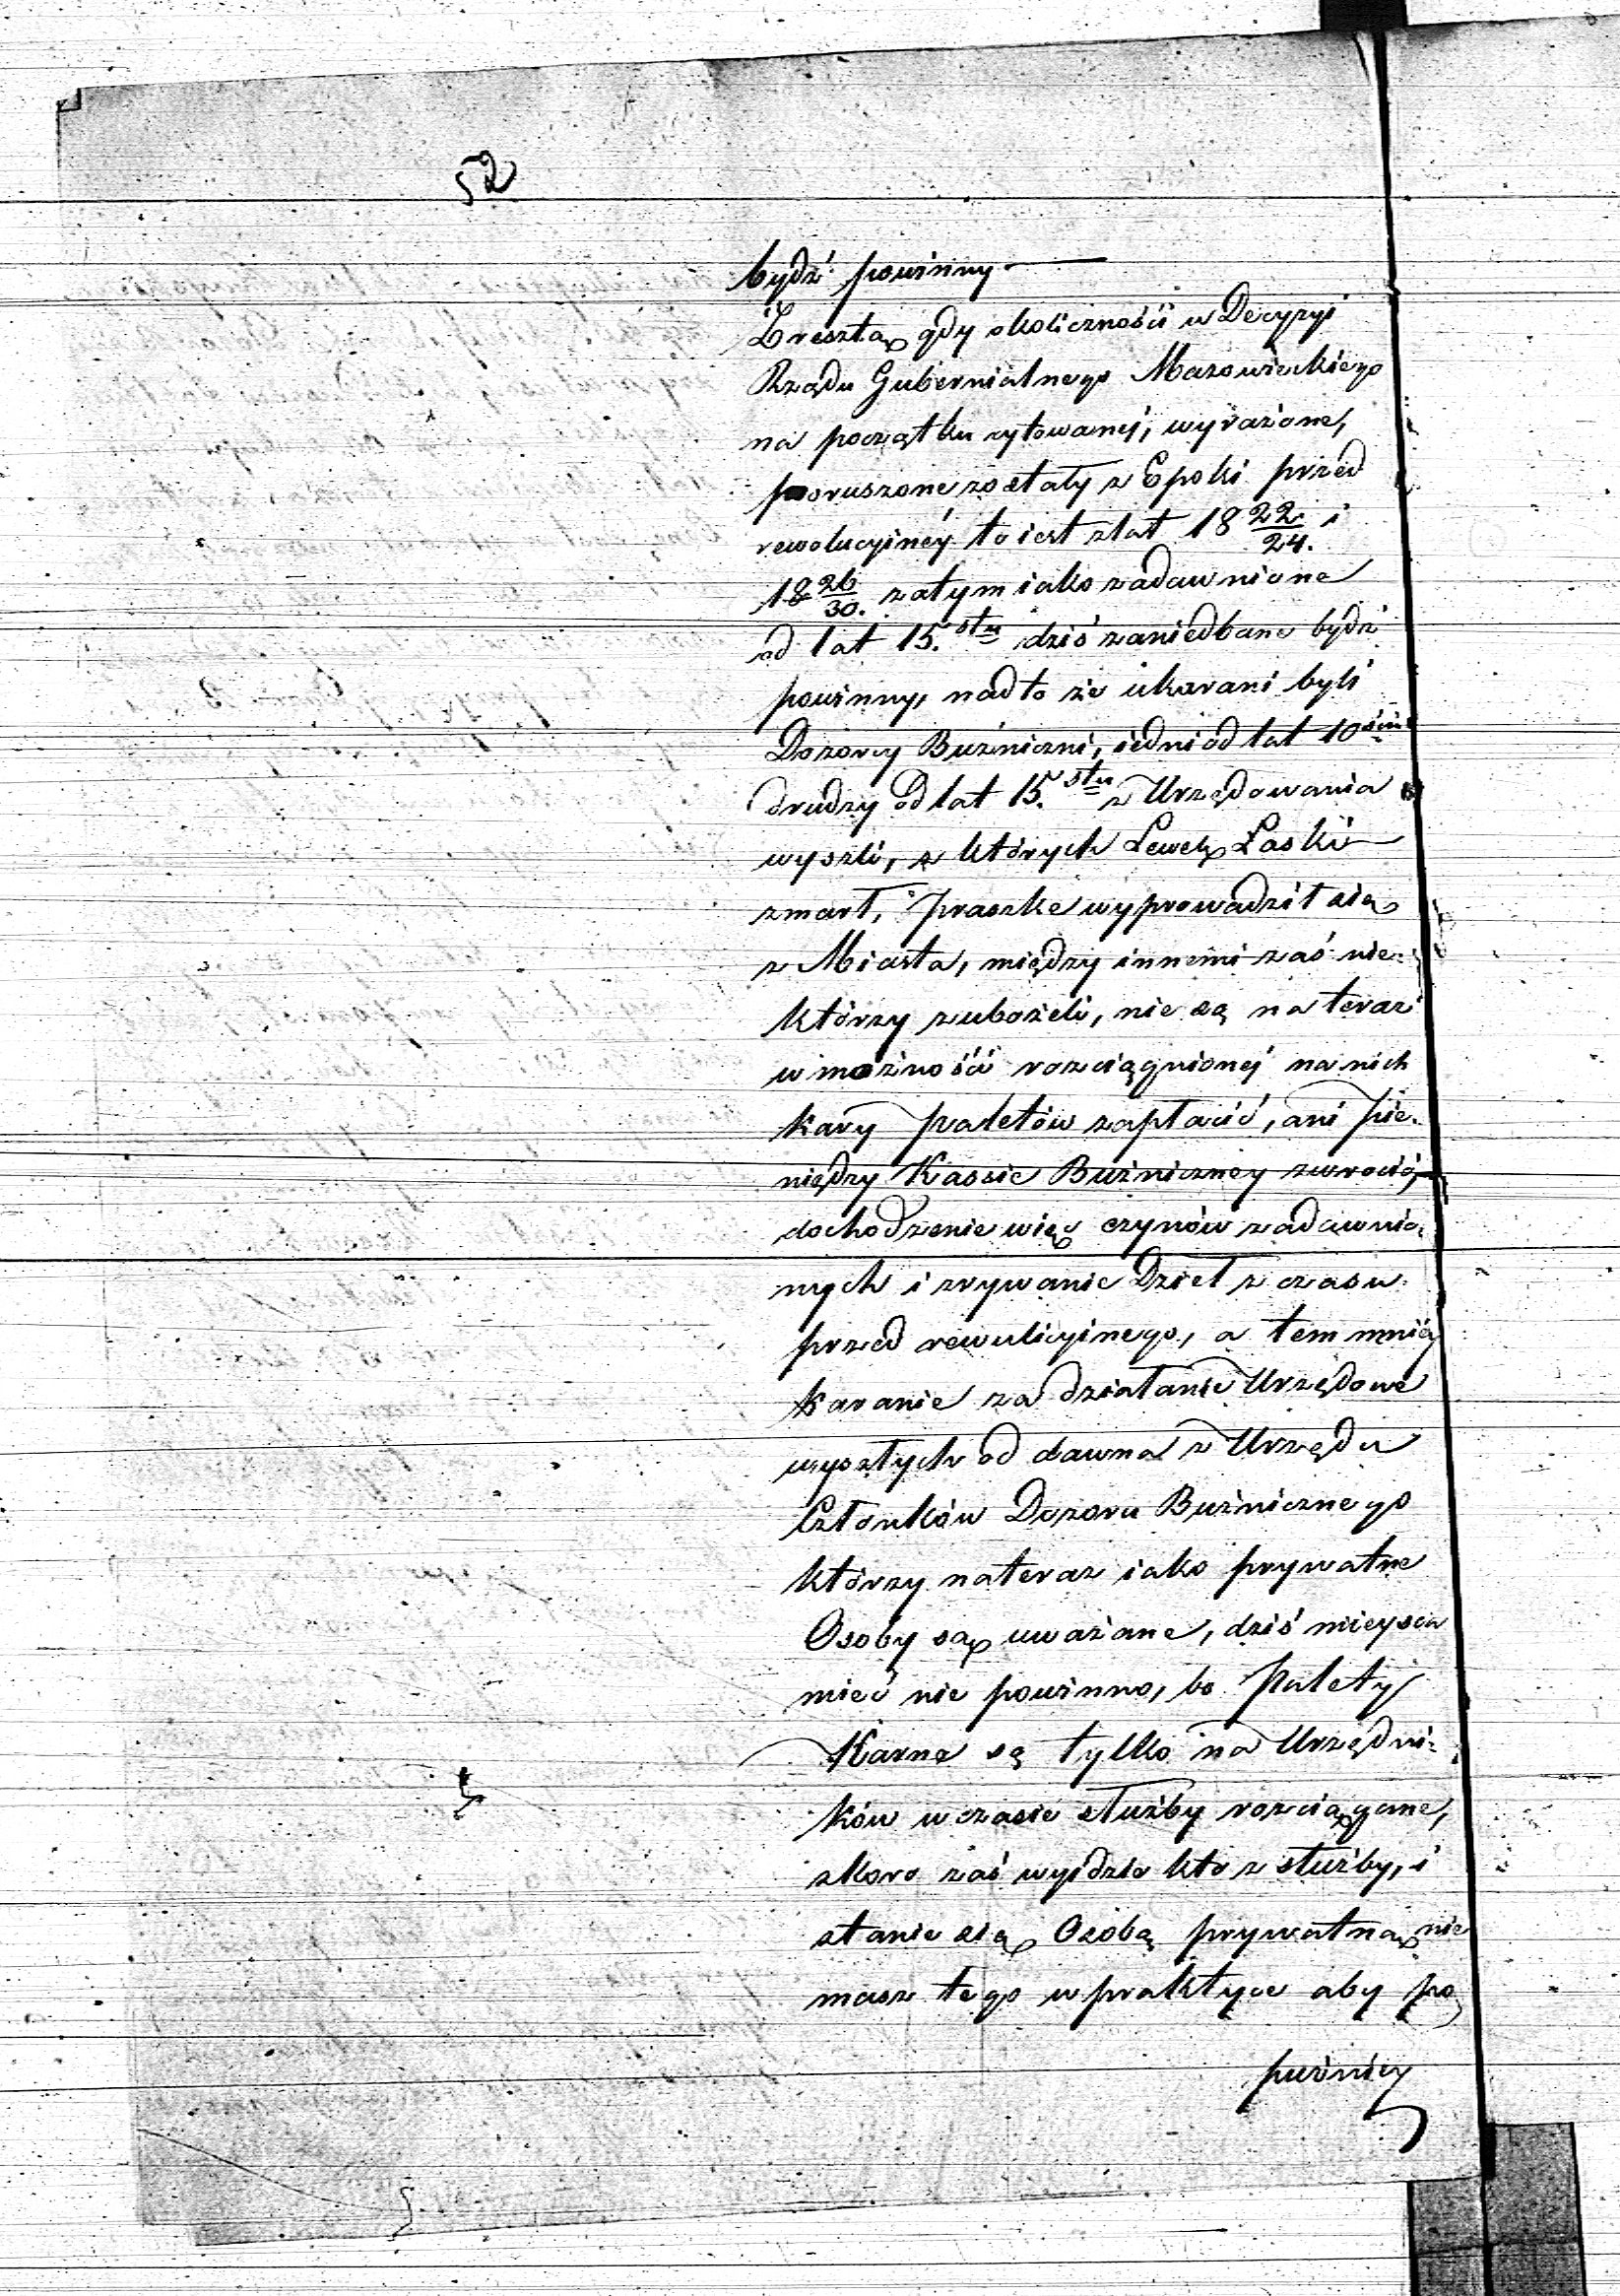 52
bydź powinny —
Zresztą gdy okoliczności w Decyzyi
Rządu Gubernialnego Mazowieckiego
na początku cytowanej, wyrażone,
poruszone zostały z Epoki przed
rewolucyinéy to iest z lat 18 22/24. i
18 26/30. zatym iako zadawnione
od lat 15.stu dziś zaniedbane bydź
powinny, nadto że ukarani byli
Dozorcy Buźniczni, iedni od lat 10ciu
drudzy od lat 15.stu z Urzędowania
wyszli, z których Lewek Laski
zmarł, Praszke wyprowadził się
z Miasta, między innemi zaś nie-
którzy zubożeli, nie są na teraz
w możność rozciągnionej na nich
kary paletów zapłacić, ani pie-
niędzy Kassie Buźniczney zwrocić,
dochodzenie więc czynów zadawnio-
nych i zrywanie Dzieł z czasu
przed rewulicyinego, a tem mniéy
karanie za działanie Urzędowe
wyszłych od dawna z Urzędu
Członków Dozoru Buźnicznego
którzy nateraz iako prywatne
Osoby są uważane, dziś mieysca
mieć nie powinno, bo Palety
Karne są tylko na Urzędni-
ków w czasie służby rozciągane,
skoro zaś wyidzie kto z służby, i
stanie się Osobą prywatną nie
masz tego w praktyce aby po
puźniey